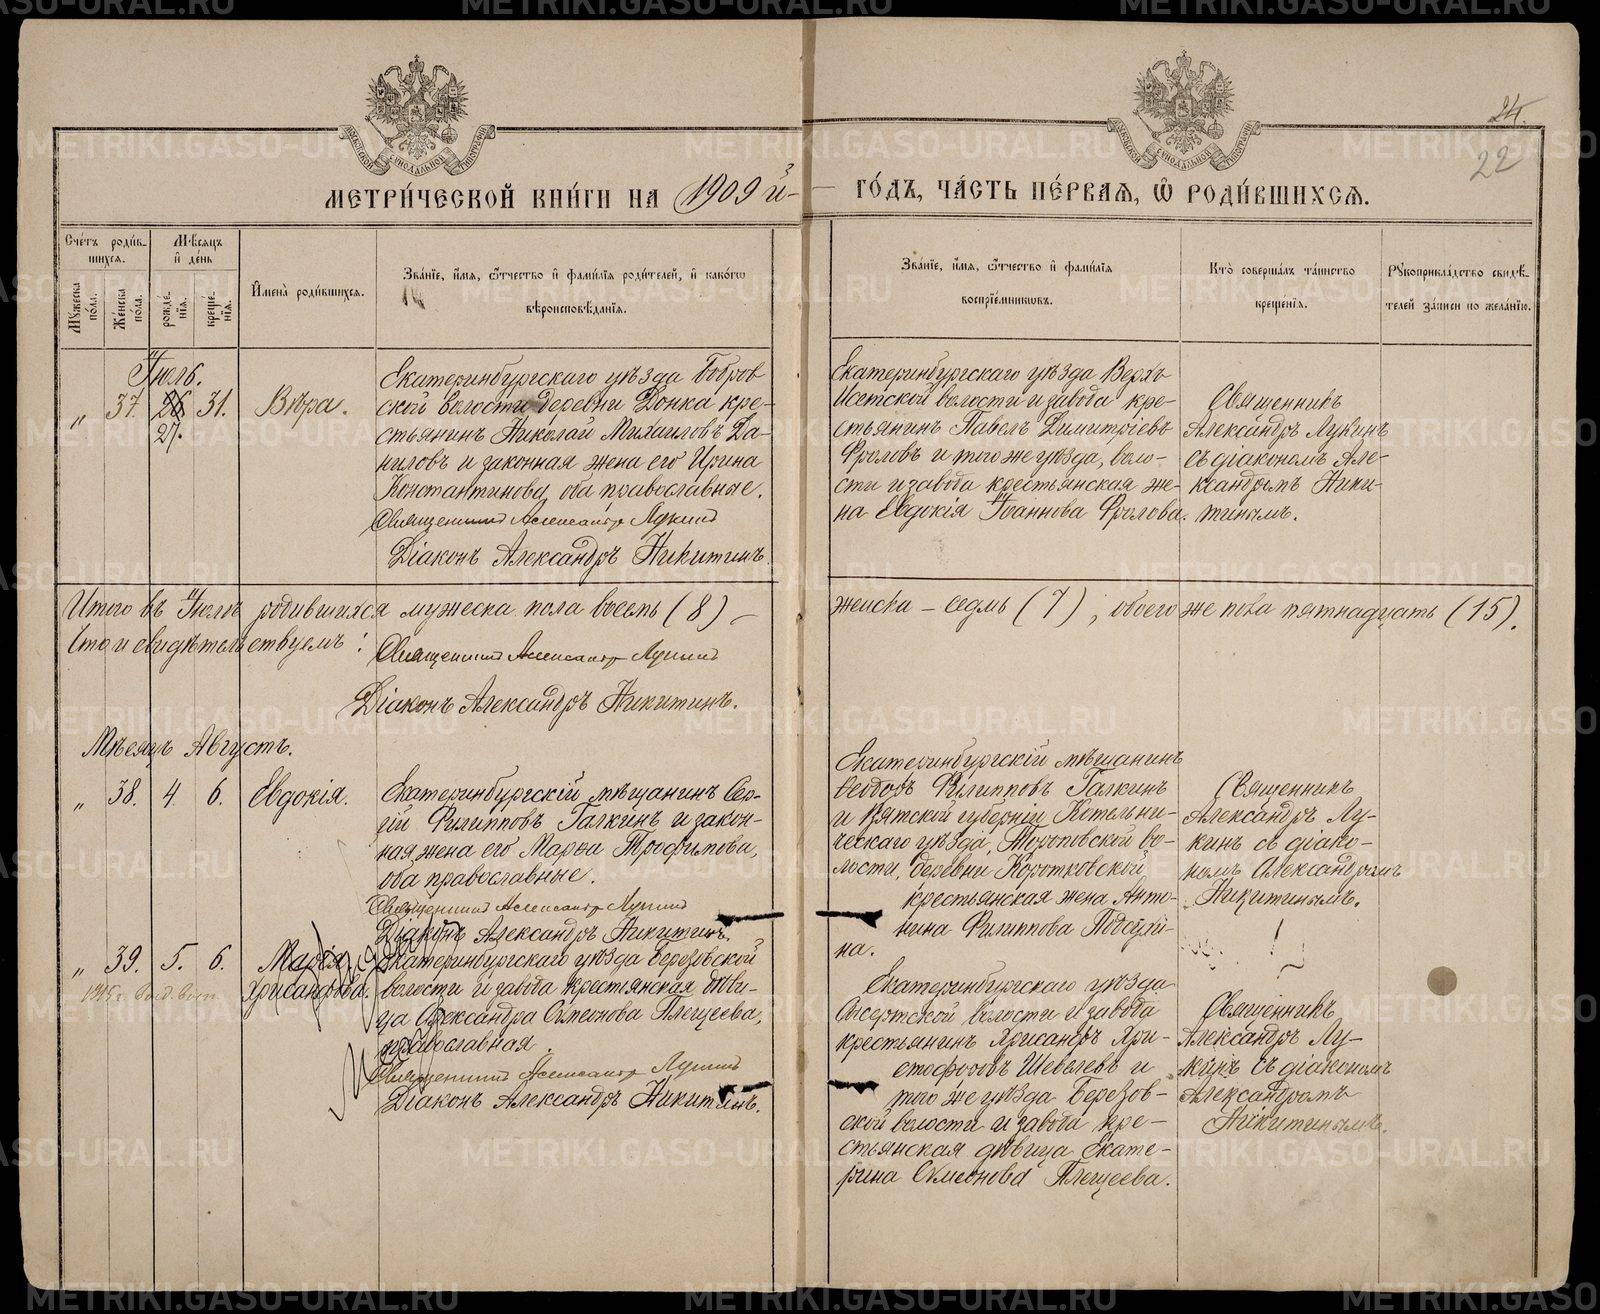 24.
22
МЕТРИ́ЧЕСКОЙ КНИ́ГИ НА 1909 й
ГО́ДЪ, ЧА́СТЬ ПЕ́РВАЯ, Ѡ РОДИ́ВШИХСЯ.
Сче́тъ роди́в-
шихся.
Му́жеска по́ла.
Же́нска по́ла.
Мѣ́сяцъ
и де́нь
рожде́-
нїя.
креще́-
нїя.
Имена̀ роди́вшихся.
Зва́нїе, и́мя, ѻ҆́тчество и фами́лїя роди́телей, и како́гѡ
вѣроисповѣ́данїя.
Зва́нїе, и́мя, ѻ҆́тчество и фами́лїя
воспрїе́мникѡвъ.
Кто̀ соверша́лъ та́инство
креще́нїя.
Рꙋкоприкла́дство свидѣ́-
телей за́писи по жела́нїю.
Іюль.
„ 37. 26 31.
27.
Вѣра.
Екатеринбургскаго уѣзда Бобров
ской волости деревни Донка кре-
стьянинъ Николай Михаиловъ Да-
ниловъ и законная жена его Ирина
Константинова, оба православные.
Священникъ Александр Лукинъ
Діаконъ Александръ Никитинъ.
Екатеринбургскаго уѣзда Верхъ
Исетской волости и завода кре-
стьянинъ Павелъ Димитріевъ
Фроловъ и того же уѣзда, воло-
сти и завода крестьянская же-
на Евдокія Іоаннова Фролова.
Священникъ
Александръ Лукинъ
съ діакономъ Але-
ксандромъ Ники-
тинымъ.
Итого въ Іюлѣ родившихся мужеска пола восемь (8) –
женска – седмь (7), обоего же пола пятнадцать (15).
Что и свидѣтельствуемъ:
Священникъ Александр Лукинъ
Діаконъ Александръ Никитинъ.
Мѣсяцъ Августъ.
„ 38. 4. 6.
Евдокія.
Екатеринбургскій мѣщанинъ Сер-
гій Филипповъ Галкинъ и закон-
ная жена его Марѳа Трофимова,
оба православные.
Священникъ Александр Лукинъ
Діаконъ Александръ Никитинъ.
Екатеринбургскій мѣщанинъ
Ѳеодоръ Филипповъ Галкинъ
и Вятской губерніи Котельни-
ческаго уѣзда, Тороповской во-
лости, деревни Коротковской
крестьянская жена Анто-
нина Филиппова
на.
Священникъ
Александръ Лу-
кинъ съ діако-
номъ Александромъ
Никитинымъ.
„ 39. 5. 6.
Марія
Хрисанфова.
Екатеринбургскаго уѣзда Березовской
волости и завода крестьянская дѣви-
ца Александра Симеонова Плещеева,
православная.
Священникъ Александр Лукинъ
Діаконъ Александръ Никитинъ.
Екатеринбургскаго уѣзда
Сысертской волости и завода
крестьянинъ Хрисанфъ Хри-
стофоровъ Шевелевъ и
того же уѣзда Березов-
ской волости и завода кре-
стьянская дѣвица Екате-
рина Симеонова Плещеева.
Священникъ
Александръ Лу-
кинъ съ діакономъ
Александромъ
Никитинымъ.
METRIKI.GASO-URAL.RU